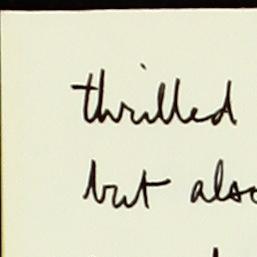 thrilled
but also